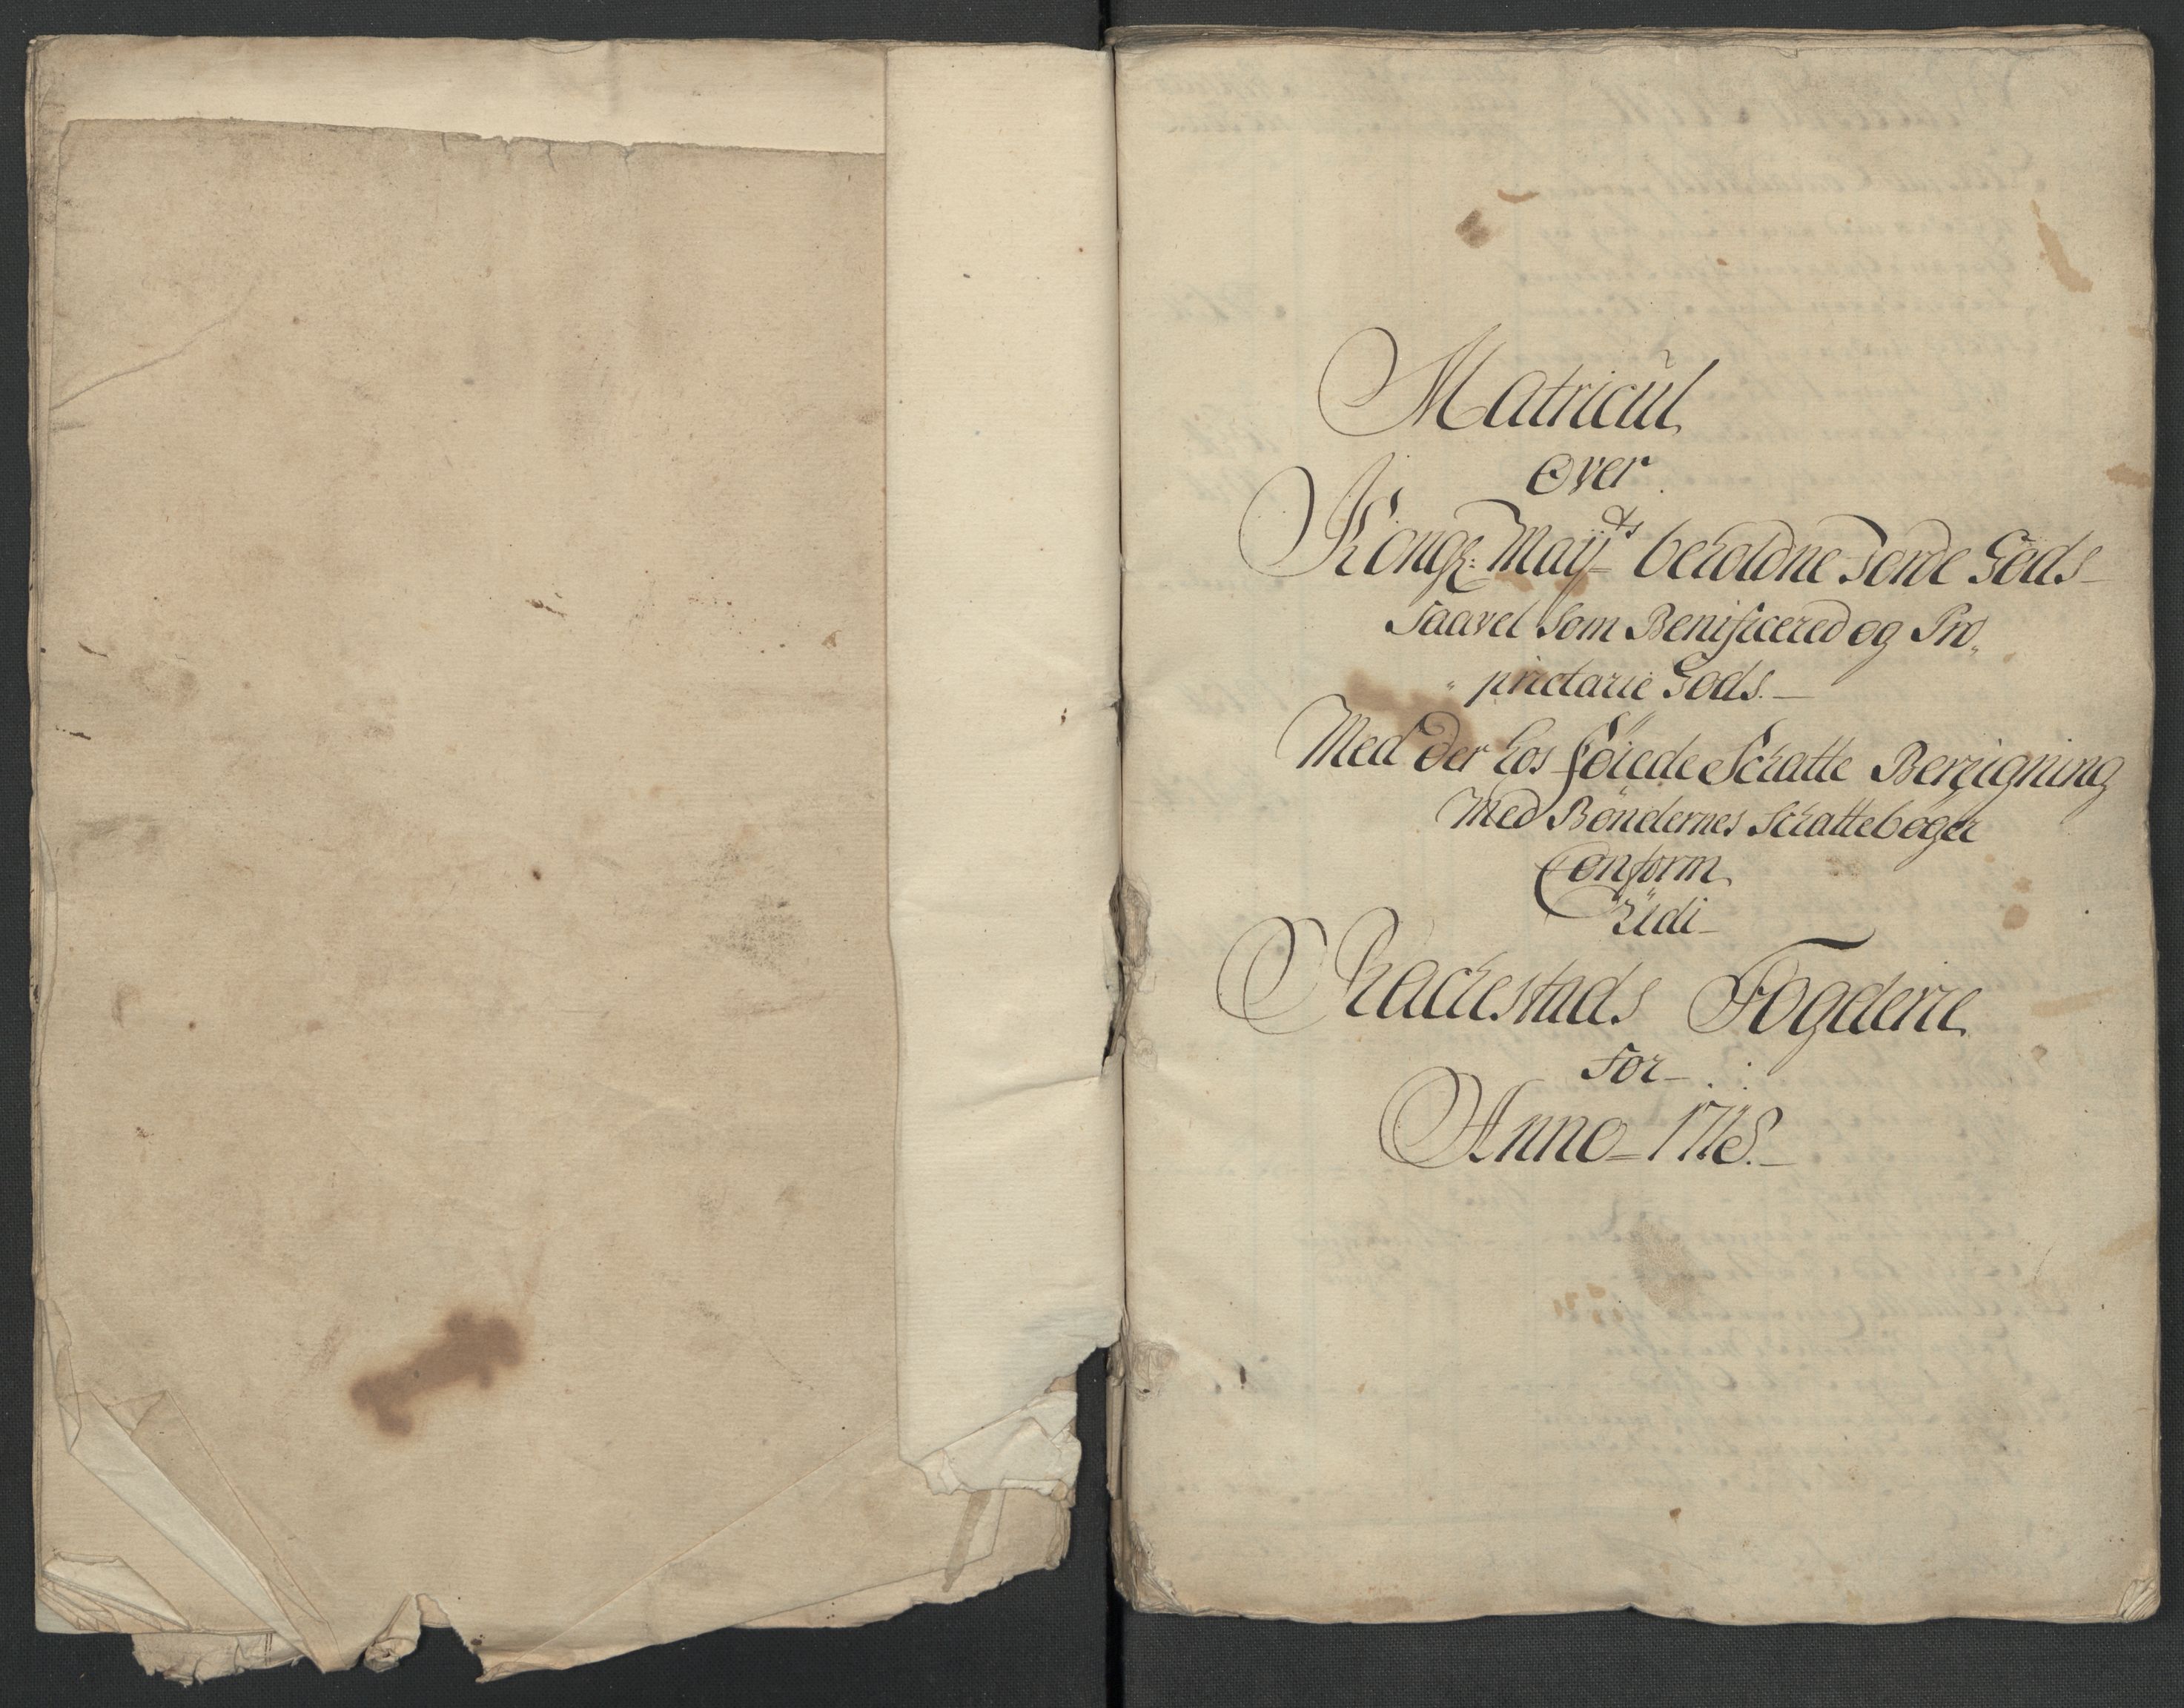 Matricul
Over
Kongl: Maÿts beholdne Jorde Gods
saavel som Benificered og Pro,,
,,prietarie Gods.
Med der hos föiede Schatte Beregning
Med Böndernes Schattebøger
Conform
Udi
Rachestads Fogderie
for
Anno 1718.